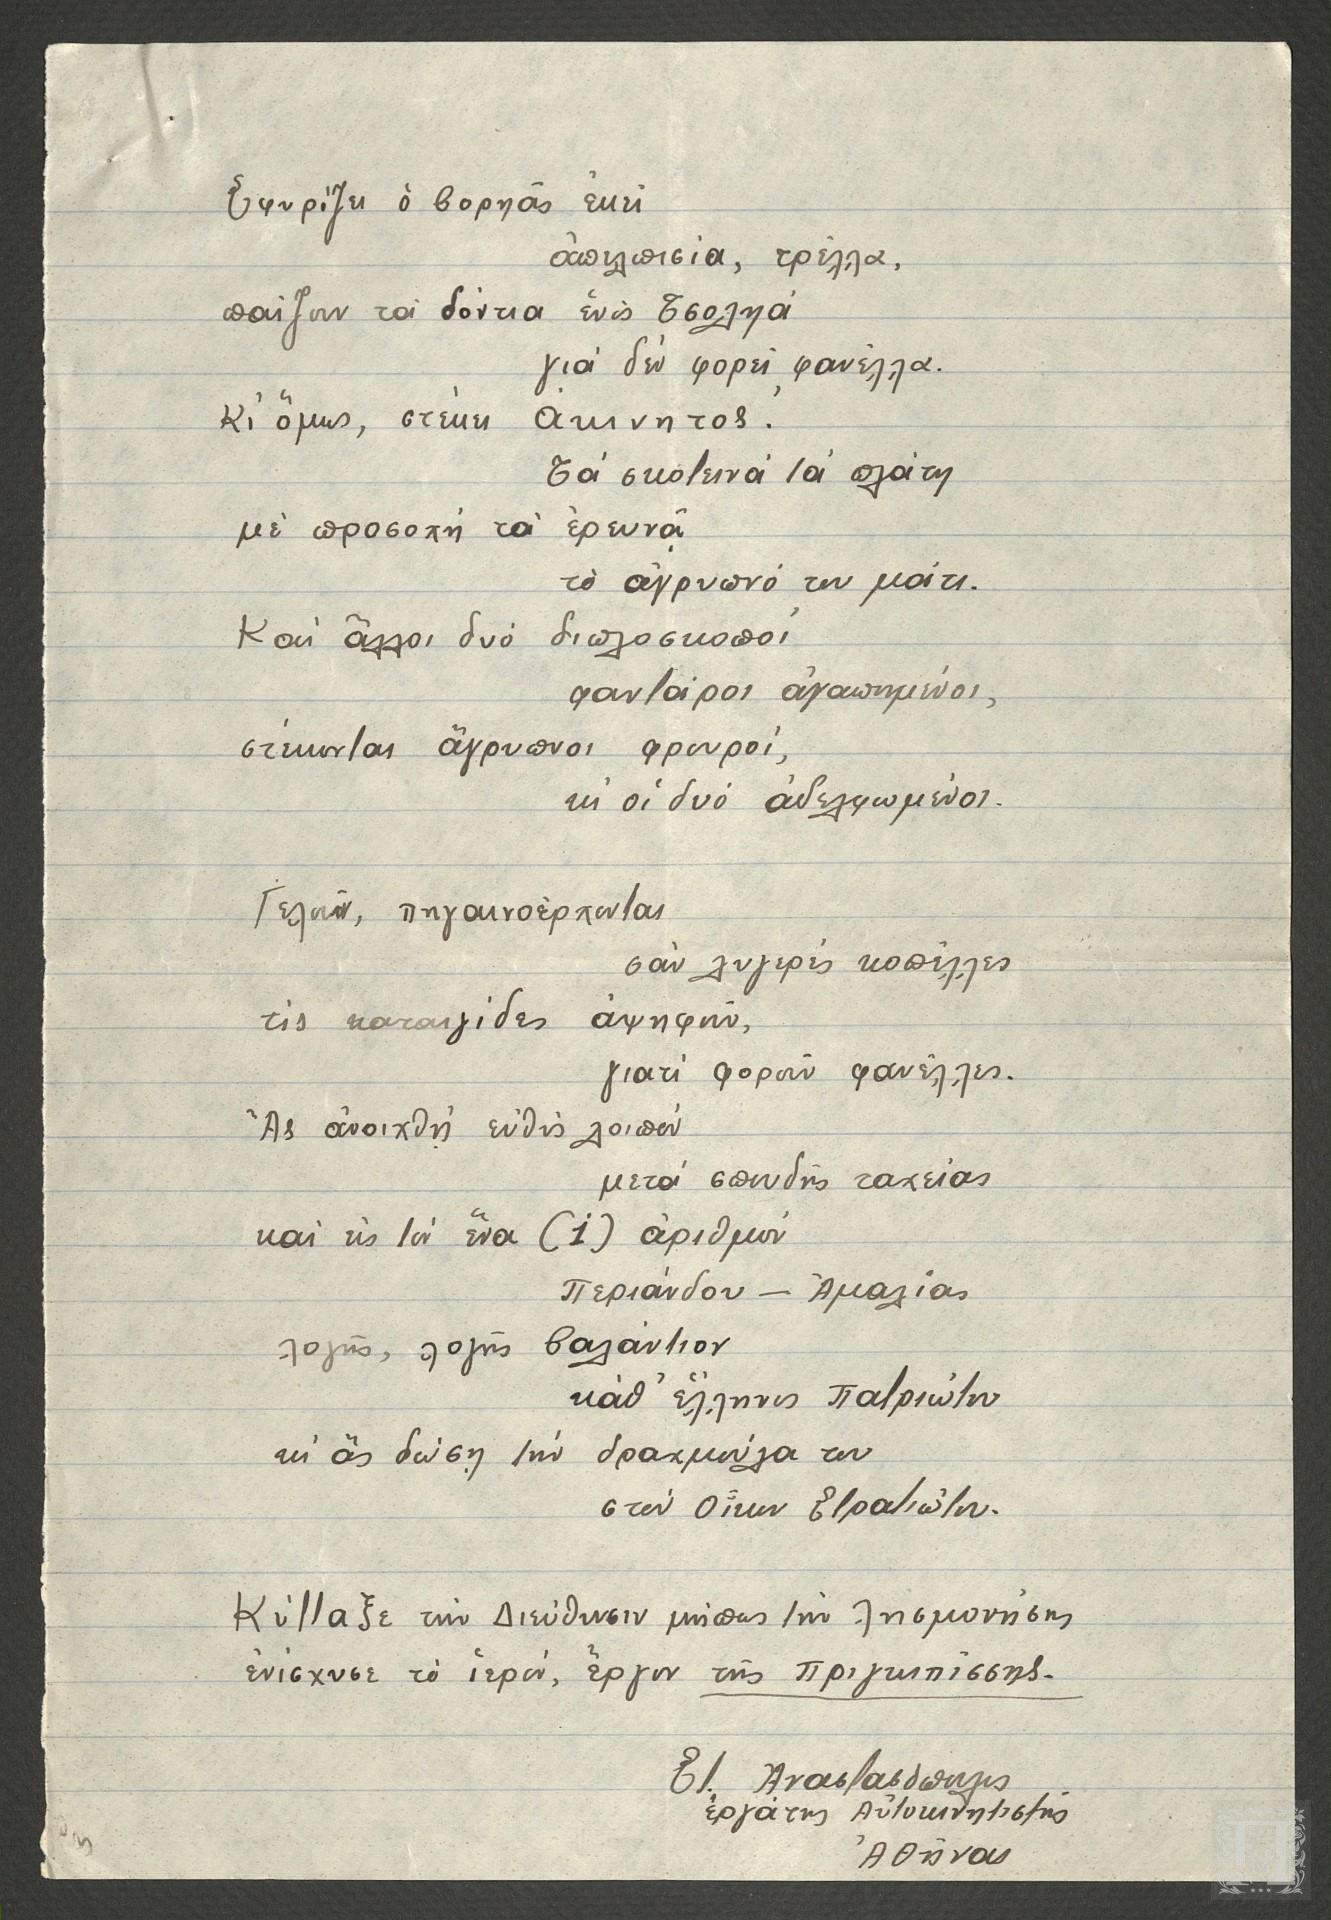 Σφυρίζει ὁ βορηᾶς ἐκεῖ
ἀπελπισία, τρέλλα,
παίζουν τὰ δόντια ἑνὸς Τσοληά
γιὰ δὲν φορεῖ φανέλλα.
Κι' ὅμως, στέκει ἀκίνητος.
Τὰ σκοτεινὰ τὰ πλάτη
μὲ προσοχὴ τὰ ἐρευνᾷ
τὸ ἄγρυπνό του μάτι.
Καὶ ἄλλοι δυὸ διπλοσκοποὶ
φαντάροι ἀγαπημένοι,
στέκονται ἄγρυπνοι φρουροί,
κι οἱ δυὸ ἀδελφωμένοι.
Γελοῦν, πηγαινοέρχονται
σὰν λυγερὲς κοπέλλες
τὶς καταιγίδες ἀψηφοῦν,
γιατὶ φοροῦν φανέλλες.
Ἂς ἀνοιχθῇ εὐθὺς λοιπὸν
μετὰ σπουδῆς ταχείας
καὶ εἰς τὸν ἕνα (1) ἀριθμὸν
Περιάνδου – Ἀμαλίας
λογῆς, λογῆς βαλάντιον
κάθ' ἕλληνος Πατριώτου
κι ἂς δώσῃ τὴν δραχμούλα του
στὸν Οἶκον Στρατιώτου.
Κύτταξε τὴν Διεύθυνσιν μήπως τὴν λησμονήσης
ἐνίσχυσε τὸ ἱερόν, ἔργον τῆς Πριγκιπίσσης.
Στ. Αναστασόπουλος
ἐργάτης Αὐτοκινητιστής
Ἀθῆναι